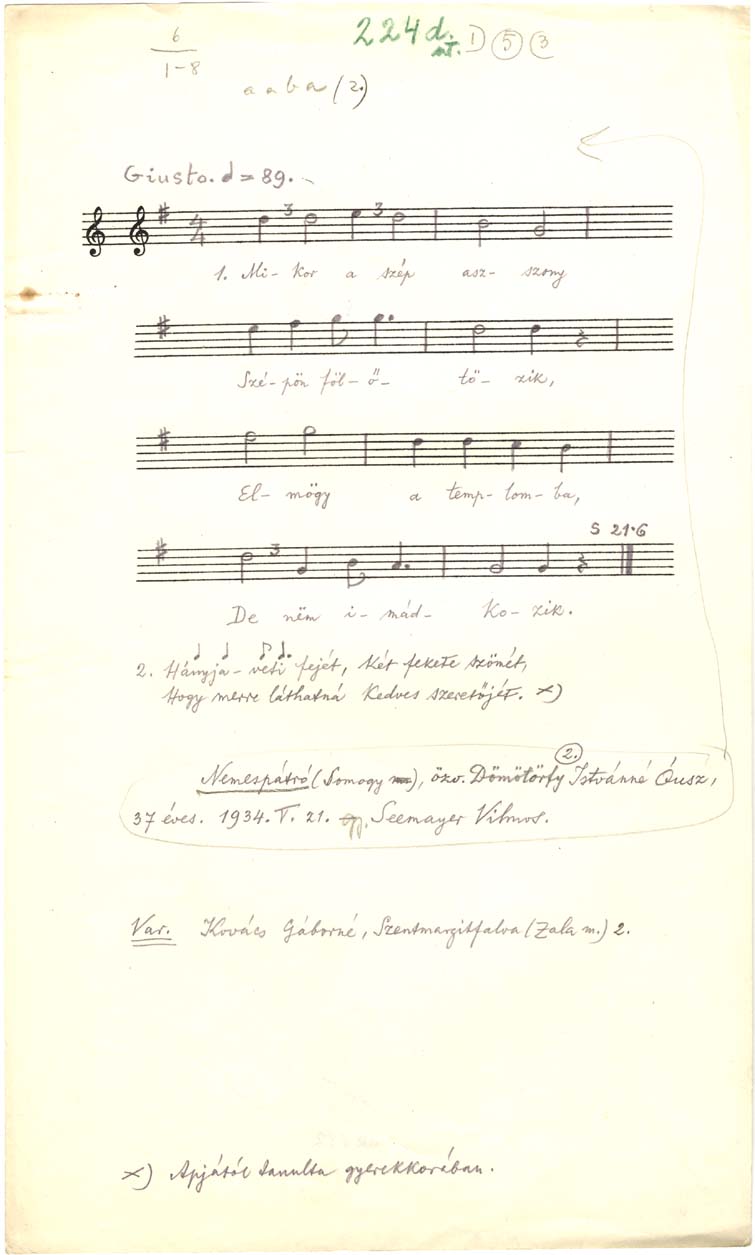 6
1-8
224d.
mT. D 5 3
a a b a (2.)
Giusto. ♩ = 89.
4
4
3 3
1. Mi- kor a szép asz- szony
Szé- pön föl- ő- tö- zik,
El- mögy a temp- lom- ba,
S 21.6
3
De nëm i- mád- Ko- zik.
2. Hányja-veti fejét, két fekete szömét,
Hogy merre láthatná Kedves szeretőjét. x)
2.
Nemespátró (Somogy m), özv. Dömötörfy Istvánné Óusz,
37 éves. 1934. V. 21. gy. Seemayer Vilmos.
Var. Kovács Gáborné, Szentmargitfalva (Zala m.) 2.
x) Apjától tanulta gyerekkorában.